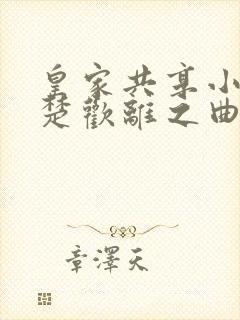 皇家共享小
楚歡離之曲
章澤天